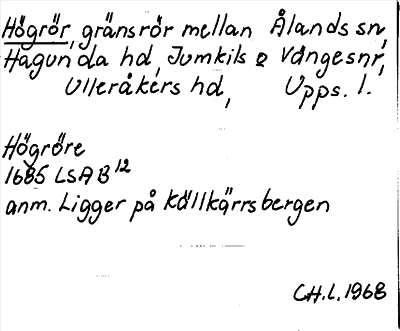 Högrör, gränsrör mellan Ålands sn,
Hagunda hd, Jumkils o Vänge snr,
Ulleråkers hd, Upps. l.
Högröre
1685 LSA B 12
anm. Ligger på Källkärrsbergen
CH.L. 1968